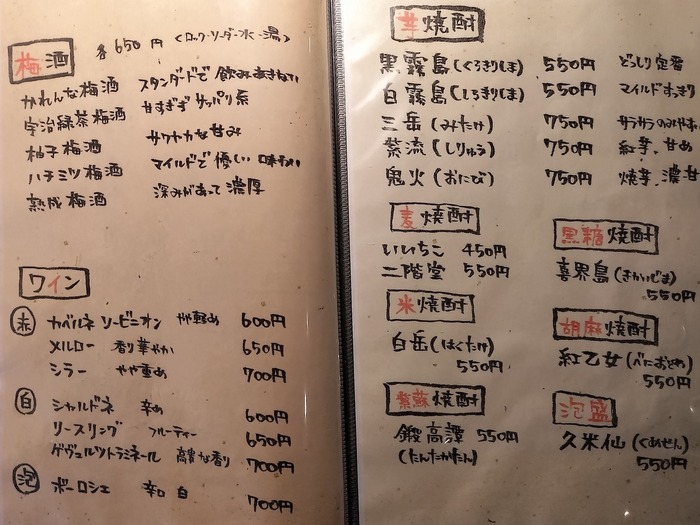 梅酒 各650円 (ロック・ソーダー・水・湯)
かれんな梅酒 スタンダードで飲みあきない
宇治緑茶梅酒 甘すぎず サッパリ系
柚子梅酒 サワヤカな甘み
ハチミツ梅酒 マイルドで優しい味わい
熟成梅酒 深みがあって濃厚
ワイン
赤 カベルネ ソービニオン やや軽め 600円
メルロー 香り華やか 650円
シラー やや重め 700円
白 シャルドネ 辛め 600円
リースリング フルーティー 650円
ゲヴュルツトラミネール 高貴な香り 700円
泡 ボーロシェ 辛口 白 700円
芋焼酎
黒霧島(くろきりしま) 550円 どっしり定番
白霧島(しろきりしま) 550円 マイルドすっきり
三岳(みたけ) 750円 サラサラのみやすい
紫流(しりゅう) 750円 紅芋、甘め
鬼火(おにび) 750円 焼芋、濃甘
麦焼酎
いいちこ 450円
二階堂 550円
米焼酎
白岳(はくたけ)
550円
紫蘇焼酎
鍛高譚 550円
(たんたかたん)
黒糖焼酎
喜界島(きかいじま)
550円
胡麻焼酎
紅乙女(べにおとめ)
550円
泡盛
久米仙(くめせん)
550円